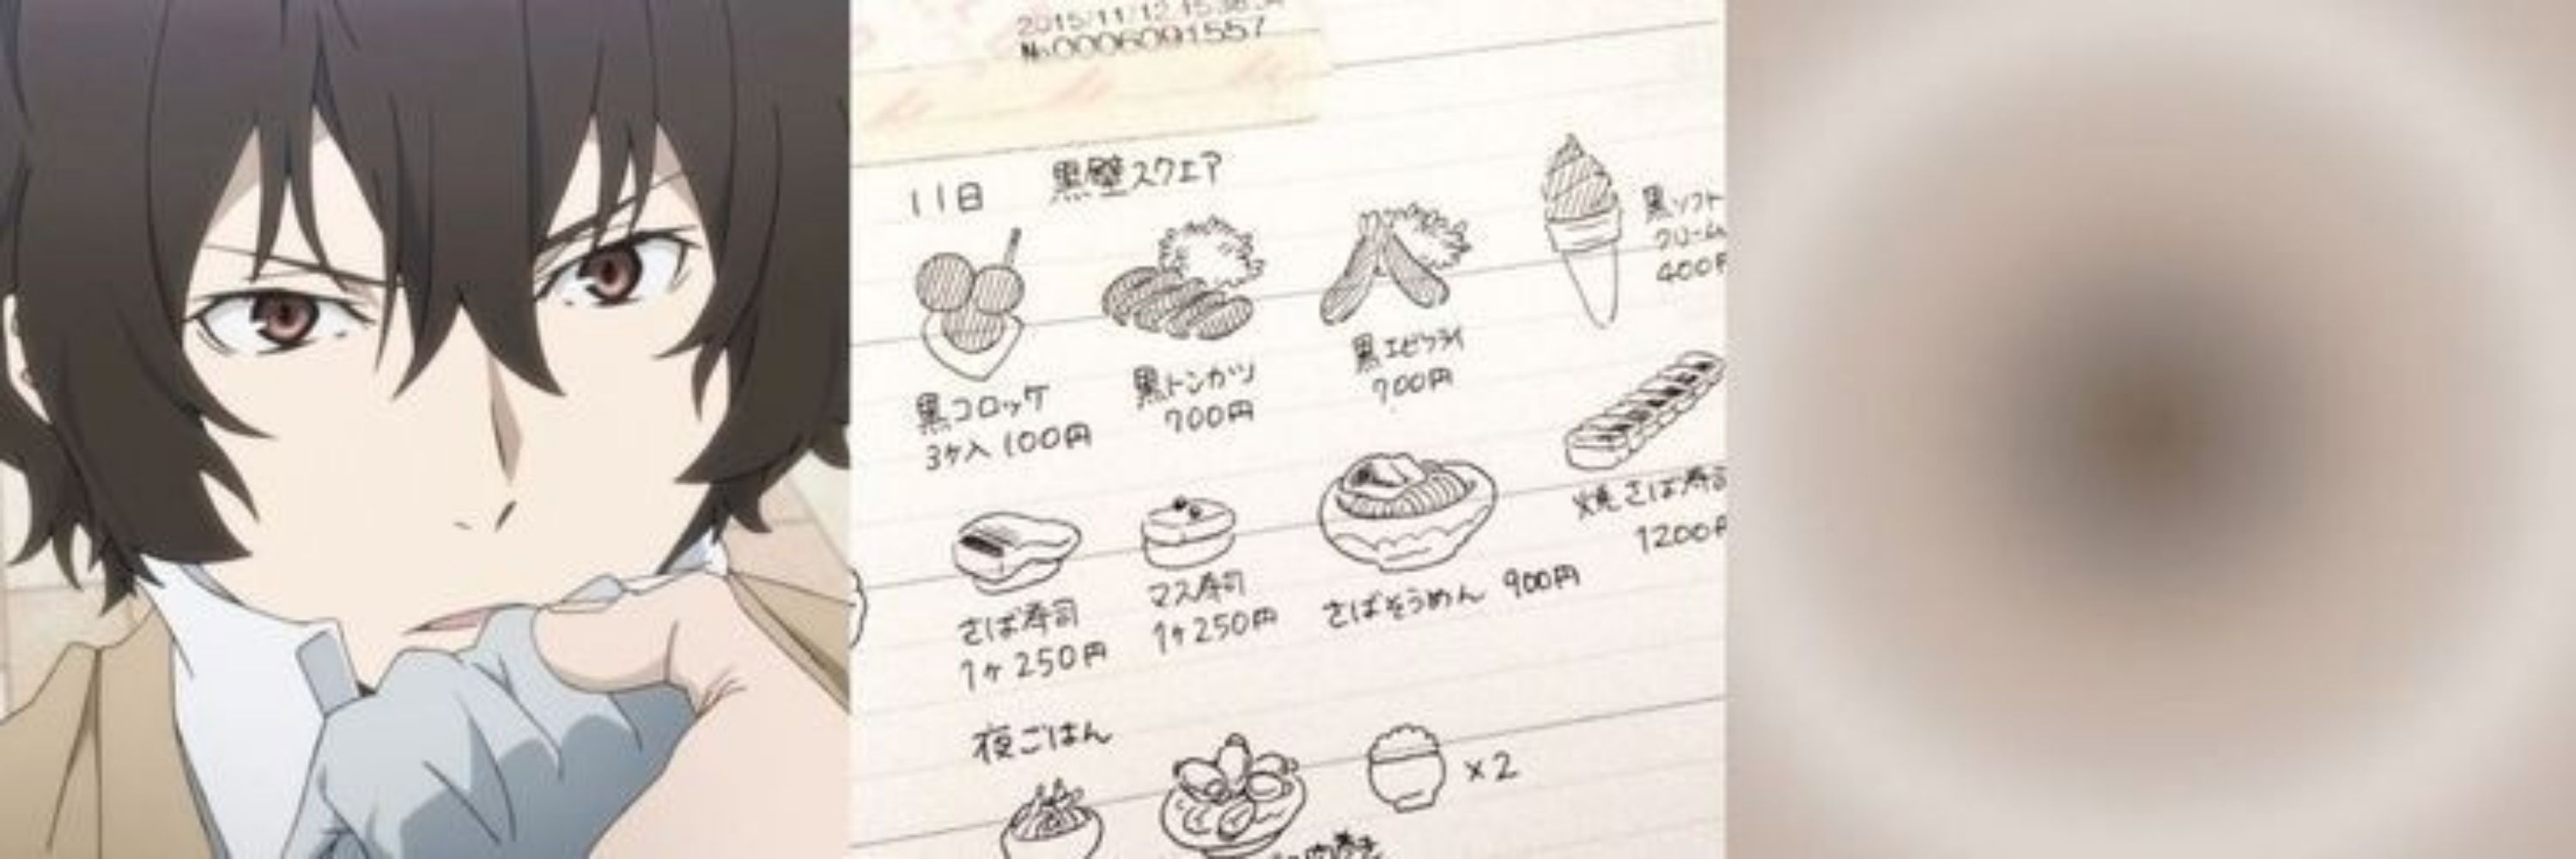 2015/11/12 15:38
No.0006091557
11日 黒壁スクエア
黒コロッケ
3ヶ入 100円
黒トンカツ
700円
黒エビフライ
700円
黒ソフト
クリーム
400円
さば寿司
1ヶ 250円
マス寿司
1ヶ250円
さばそうめん 900円
焼さば寿司
1200円
夜ごはん
×2
肉巻き